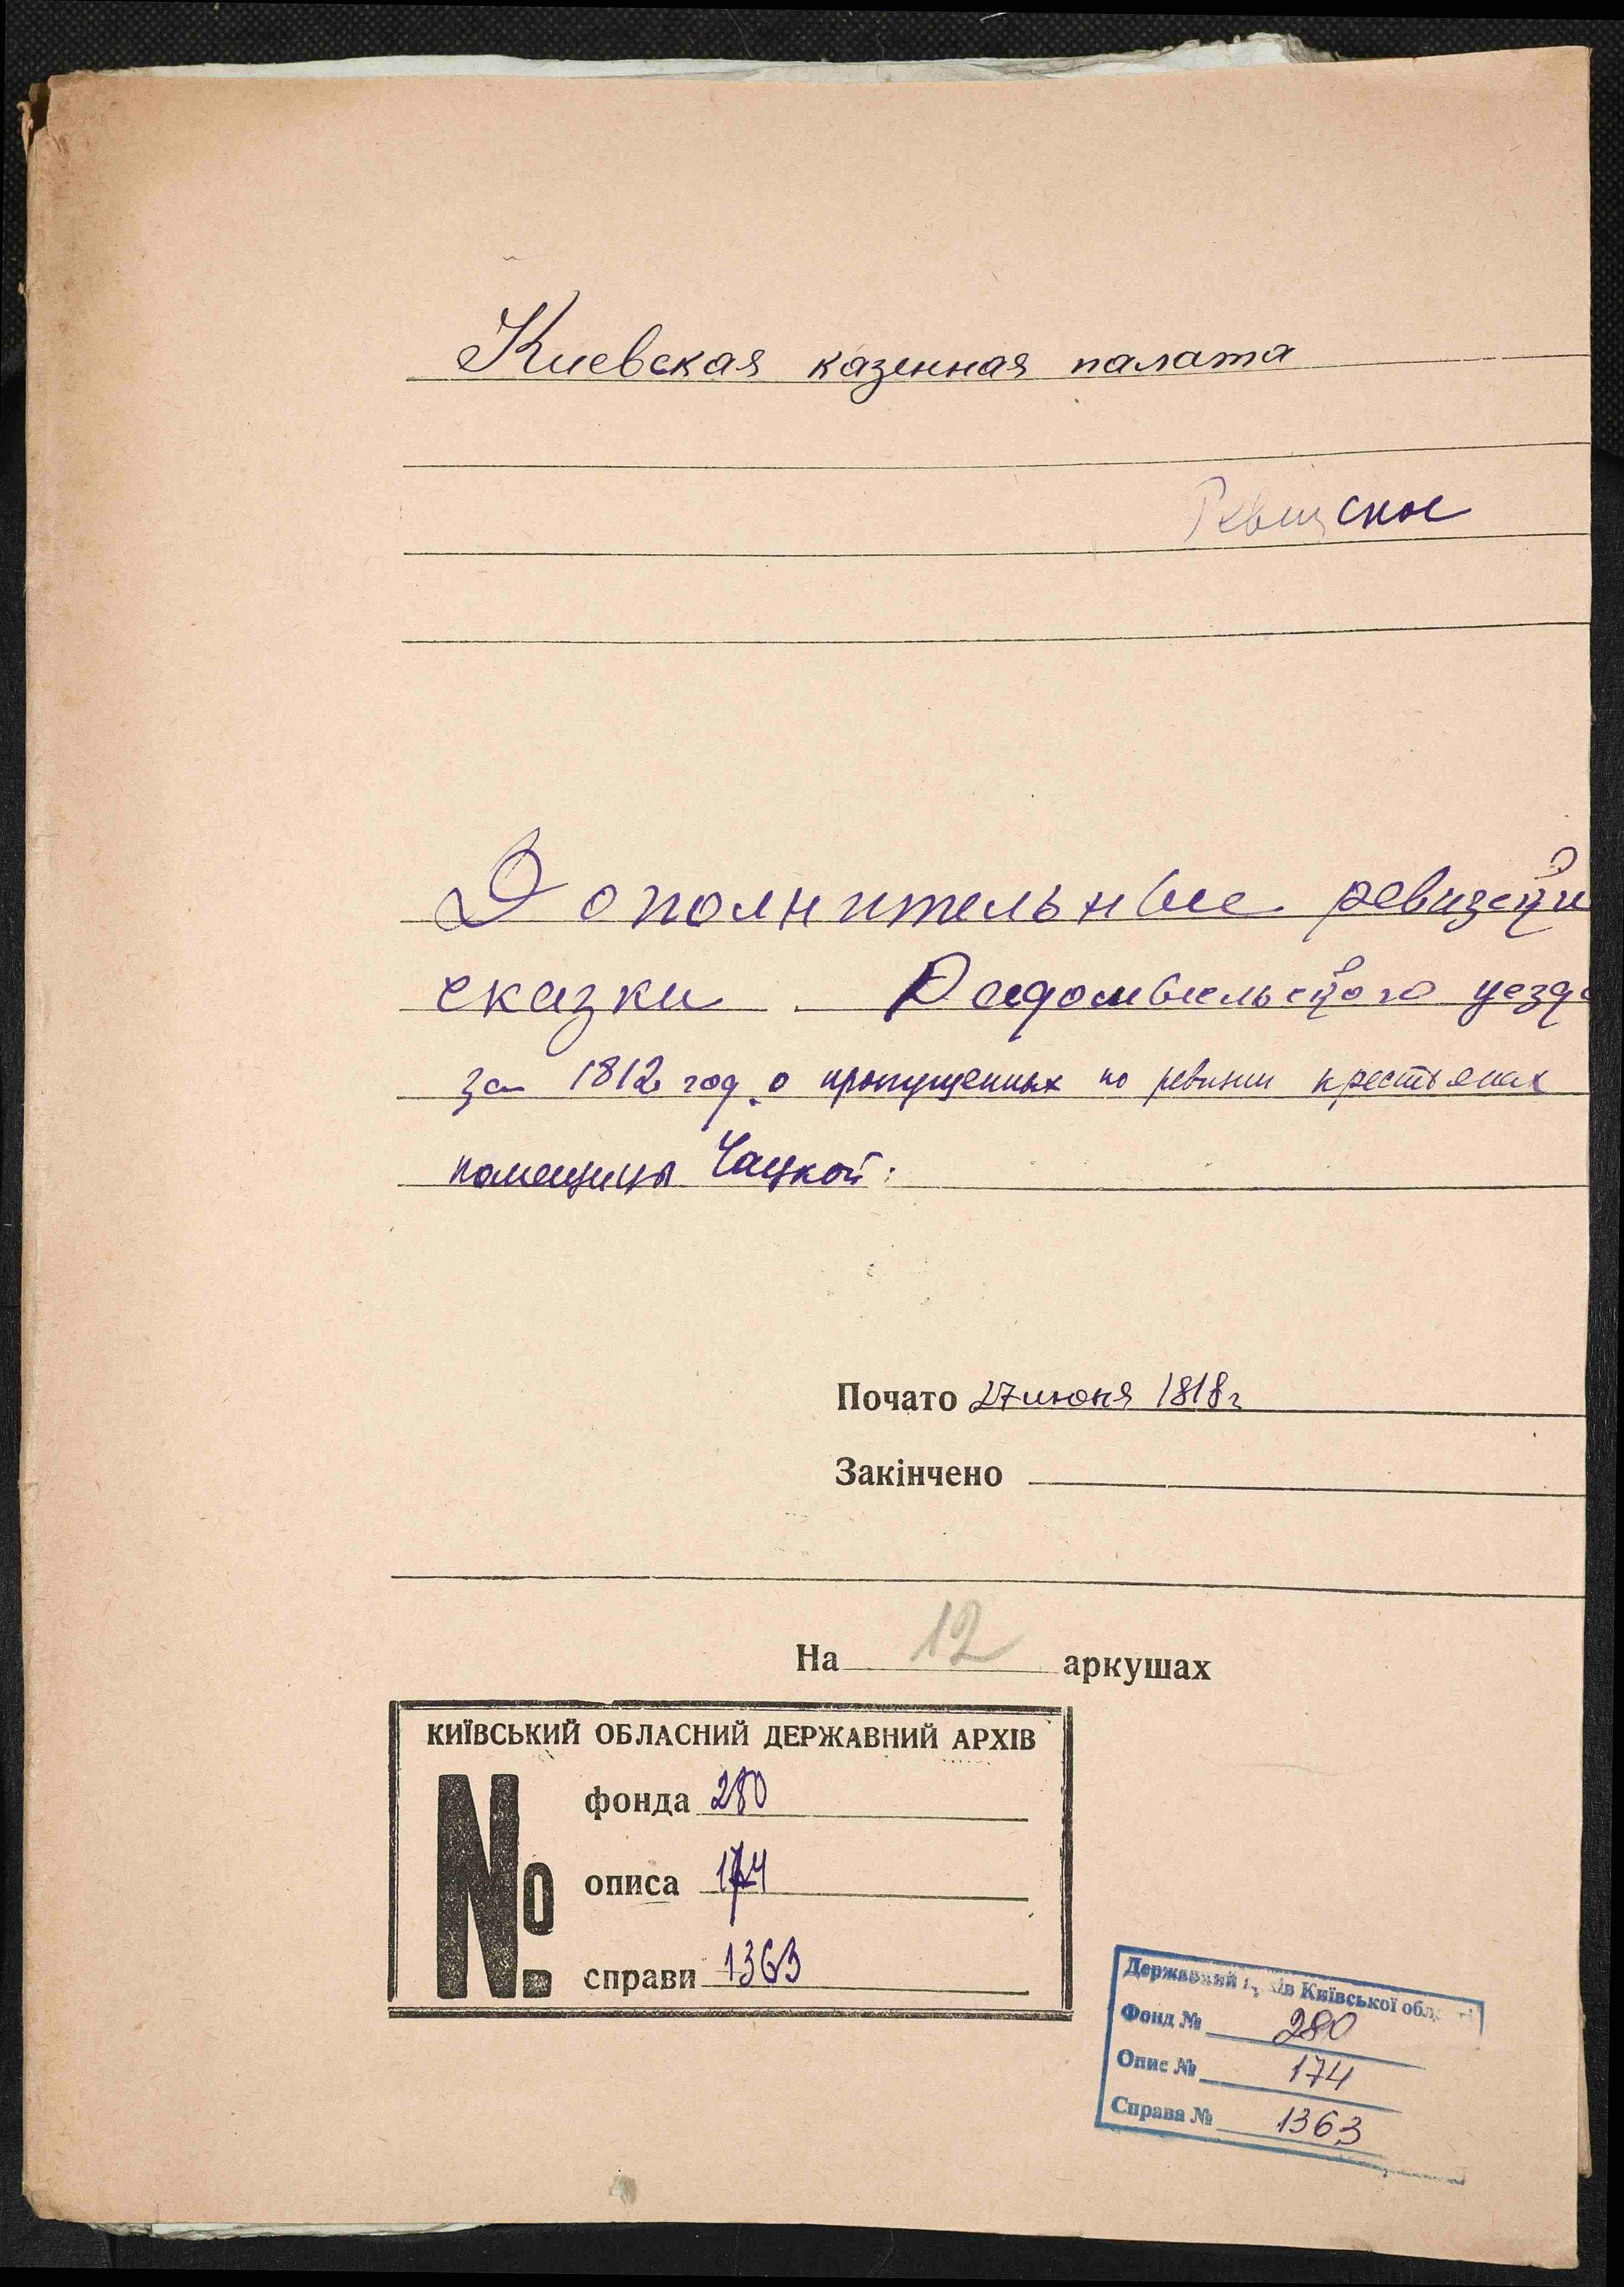 Киевская казенная палата
Ревизское
Дополнительные ревизские
сказки Радомысльского уезда
за 1812 год о пропущенных по ревизии крестьянах
помещицы Чацкой:
Почато 27 июня 1818 г
Закінчено
На 12 аркушах
КИЇВСЬКИЙ ОБЛАСНИЙ ДЕРЖАВНИЙ АРХІВ
№
фонда 280
описа 174
справи 1363
Державний архів Київської області
Фонд № 280
Опис № 174
Справа № 1363